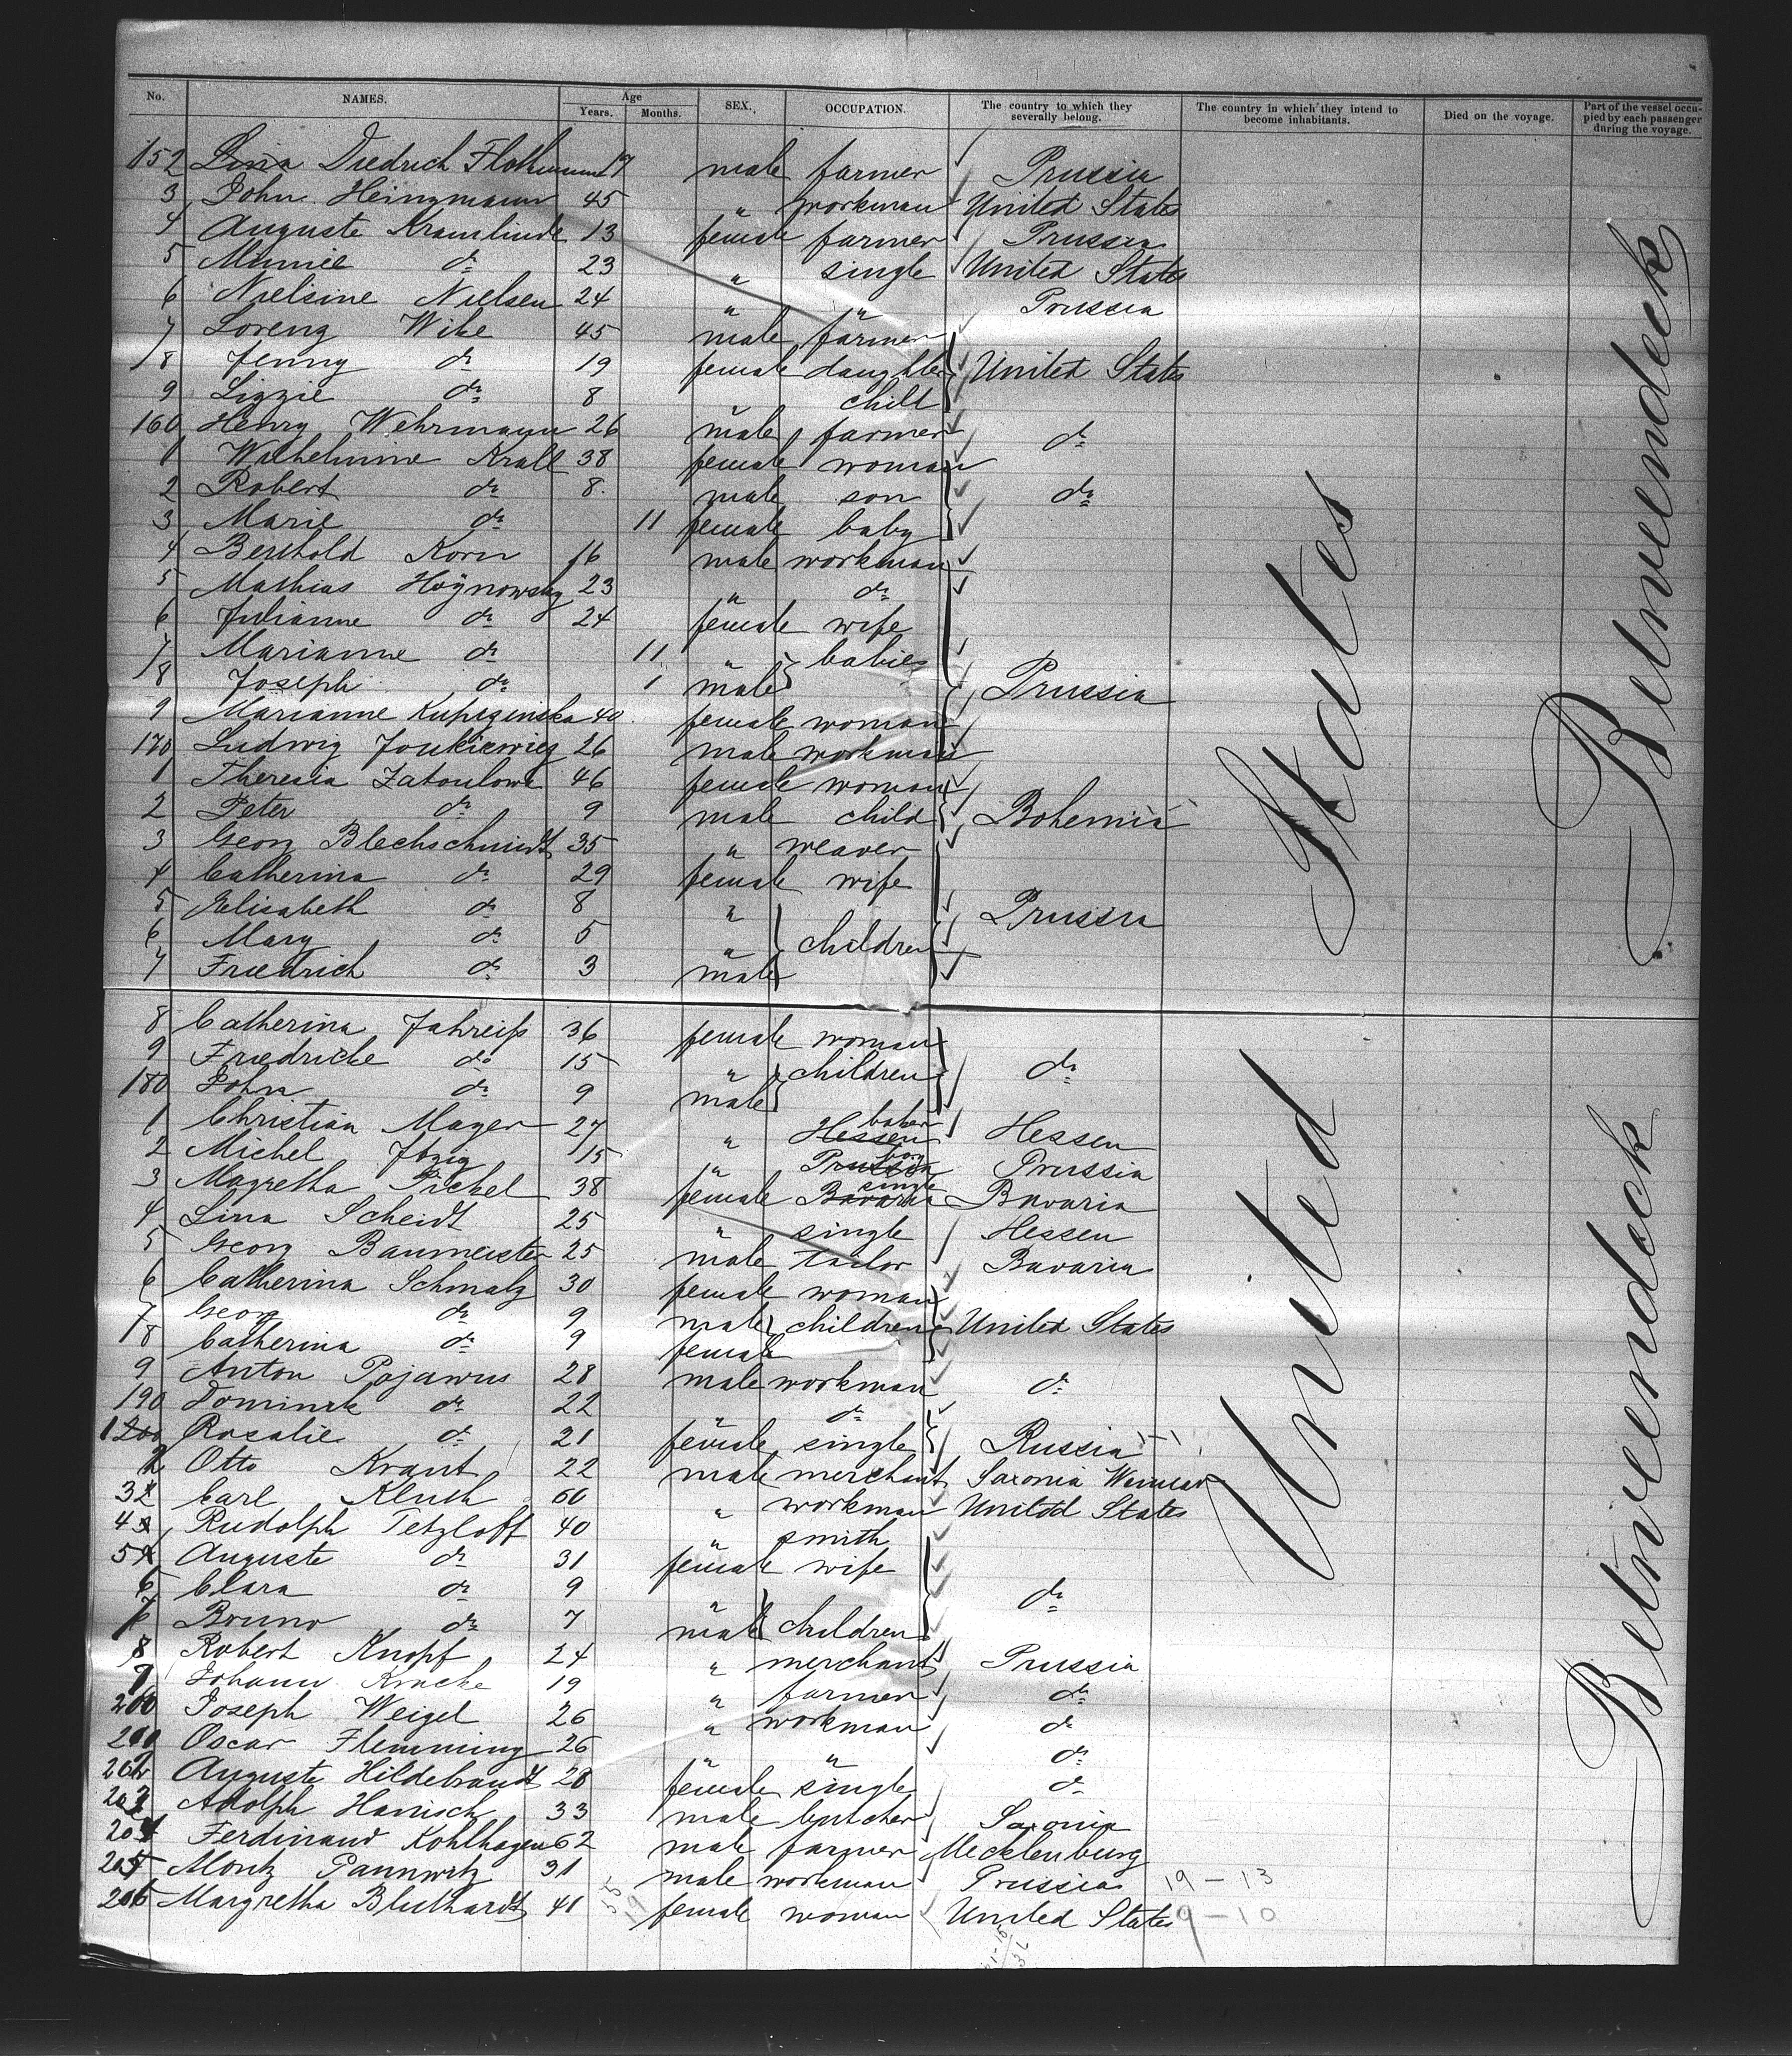 No. NAMES. Age Years. Months. SEX. OCCUPATION. The country to which they severally belong. The country in which they intend to become inhabitants. Died on the voyage. Part of the vessel occupied by each passenger during the voyage.
152 Lina Diedrich 19 male farmer Prussia
3 John Heinzmann 45 " workman United States
4 Auguste Kramlinde 13 female farmer Prussia
5 Minnie do 23 " single United States
6 Nielsine Nielsen 24 " " Prussia
7 Lorenz Wike 45 male farmer
8 Jenny do 19 female daughter United States
9 Lizzie do 8 " child
160 Henry Wehrmann 26 male farmer do
1 Wilhelmine Krall 38 female woman
2 Robert do 8 male son do
3 Marie do 11 female baby
4 Berthold Korn 16 male workman
5 Mathias Hoÿnowsky 23 " do
6 Julianne do 24 female wife
7 Marianne do 11 " babies
8 Joseph do 1 male Prussia
9 Marianne Kupczinska 40 female woman
170 Ludwig Joukiewicz 26 male workman
1 Theresia Zatoulowe 46 female woman
2 Peter do 9 male child Bohemia
3 Georg Blechschmidt 35 " weaver
4 Catherina do 29 female wife
5 Elisabeth do 8 " Prussia
6 Mary do 5 " children
7 Friedrich do 3 male
8 Catherina Jahreiß 36 female woman
9 Friedricke do 15 " children do
180 John do 9 male
1 Christian Mager 27 " Hessen baker Hessen
2 Michel Itzig 15 " Prussia boy Prussia
3 Magretha Pickel 38 female Bavaria single Bavaria
4 Lina Scheidt 25 " single Hessen
5 Georg Baumeister 25 male tailor Bavaria
6 Catherina Schmalz 30 female woman
7 Georg do 9 male children United States
8 Catherina do 9 female
9 Anton Pojawus 28 male workman do
190 Dominik do 22 " do
1 Rosalie do 21 female single Russia
2 Otto Kraut 22 male merchant Saxonia Weimar
3 Carl 60 " workman United States
4 Rudolph Tetzloff 40 " smith
5 Auguste do 31 female wife
6 Clara do 9 " do
7 Bruno do 7 male children
8 Robert Knopf 24 " merchant Prussia
9 Johann 19 " farmer do
200 Joseph Weigel 26 " workman do
201 Oscar Flemming 26 " " do
202 Auguste Hildebrandt 28 female single do
203 Adolph Harrisch 33 male butcher Saxonia
204 Ferdinand Kohlhagen 62 male farmer Mecklenburg
205 Moritz Pannwitz 31 male workman Prussia 19-13
206 Margretha Bluthardt 41 female woman United States 9-10
United States
Betweendeck
Betweendeck